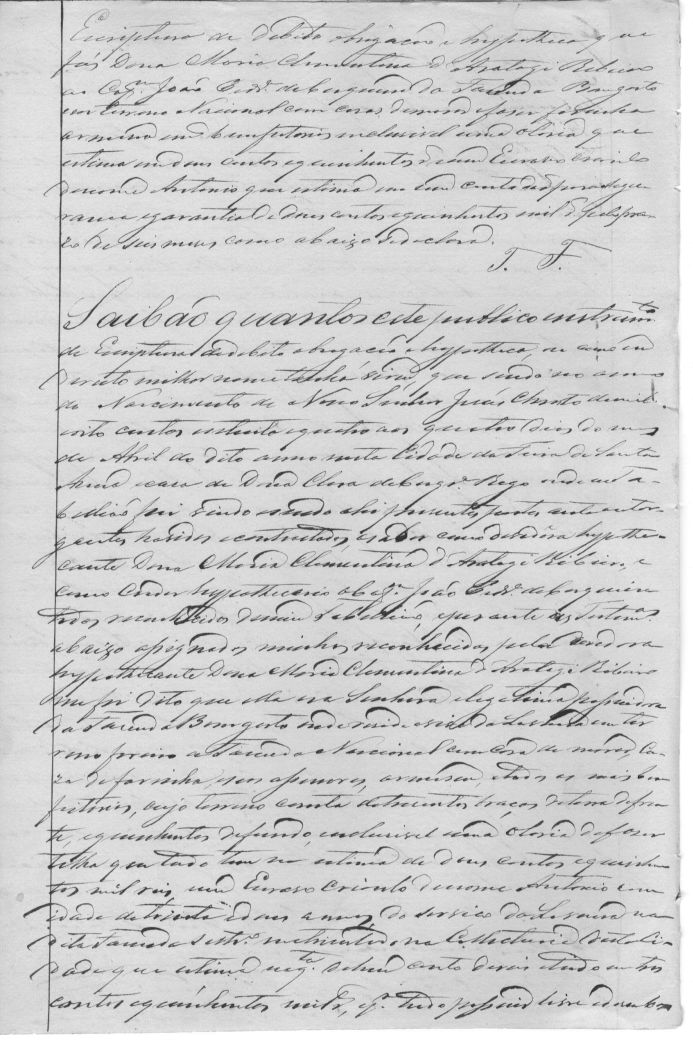 Escriptura de debito obrigação e hypotheca que
fás Dona Maria Clementina d'Aratagi Ribeiro
ao João de Cerqueira da Fazenda Bomgosto
em terreno Nacional com casas de morar e fazer farinha
armasem e bemfeitorias inclusivel uma olaria que
estima em dous contos e quinhentos e um Escravo crioulo
de nome Antonio que estima em um conto de para segu
rança e garantia de dous contos e quinhentos mil pelo pra
zo de seis meses como abaixo se declara.
T. F.
Saibão quantos este publico instrum.to
de Escriptura de debito obrigação e hypotheca, ou como em
direito milhor nome tenha virem, que sendo no anno
do Nascimento de Nosso Senhor Jesus Christo de mil
oito centos e setenta e quatro aos quatro dias do mes
de Abril do dito anno nesta Cidade da Feira de Santa
Anna e casa de Dona Clara de Rego onde eu Ta-
bellião fui vindo sendo ahi presentes partes outor-
gantes havidos e contratados, a saber como devedora hypothe-
cante Dona Maria Clementina d'Aratagi Ribeiro, e
como Credor hypothecario o João de Cerqueira
todos reconhecidos de mim Tabellião, e perante as Testem.as
abaixo assignados minhas reconhecidas pela devedora
hypothecante Dona Maria Clementina d'Aratagi Ribeiro
me foi dito que ella era Senhora e legitima possuidora
da Fazenda Bomgosto onde reside em ter
reno foreiro a Fazenda Nacional com casa de morar, ca-
za de farinha, armasem, e todas as mais bem
feitorias, cujo terreno consta de trezentos braças de terra de fren
te, e quinhentos de fundo, inclusivel uma olaria de fazer
telha que tudo tem na estima de dous contos e quinhen
tos mil reis, um Escravo Crioulo de nome Antonio com
idade de trinta e dous annos do serviço da Lavoura na
dita Fazenda matriculado na Collectoria desta Ci-
dade que estima de um conto de reis, e tudo em tres
contos e quinhentos mil, q. tudo possuir livre e desemba